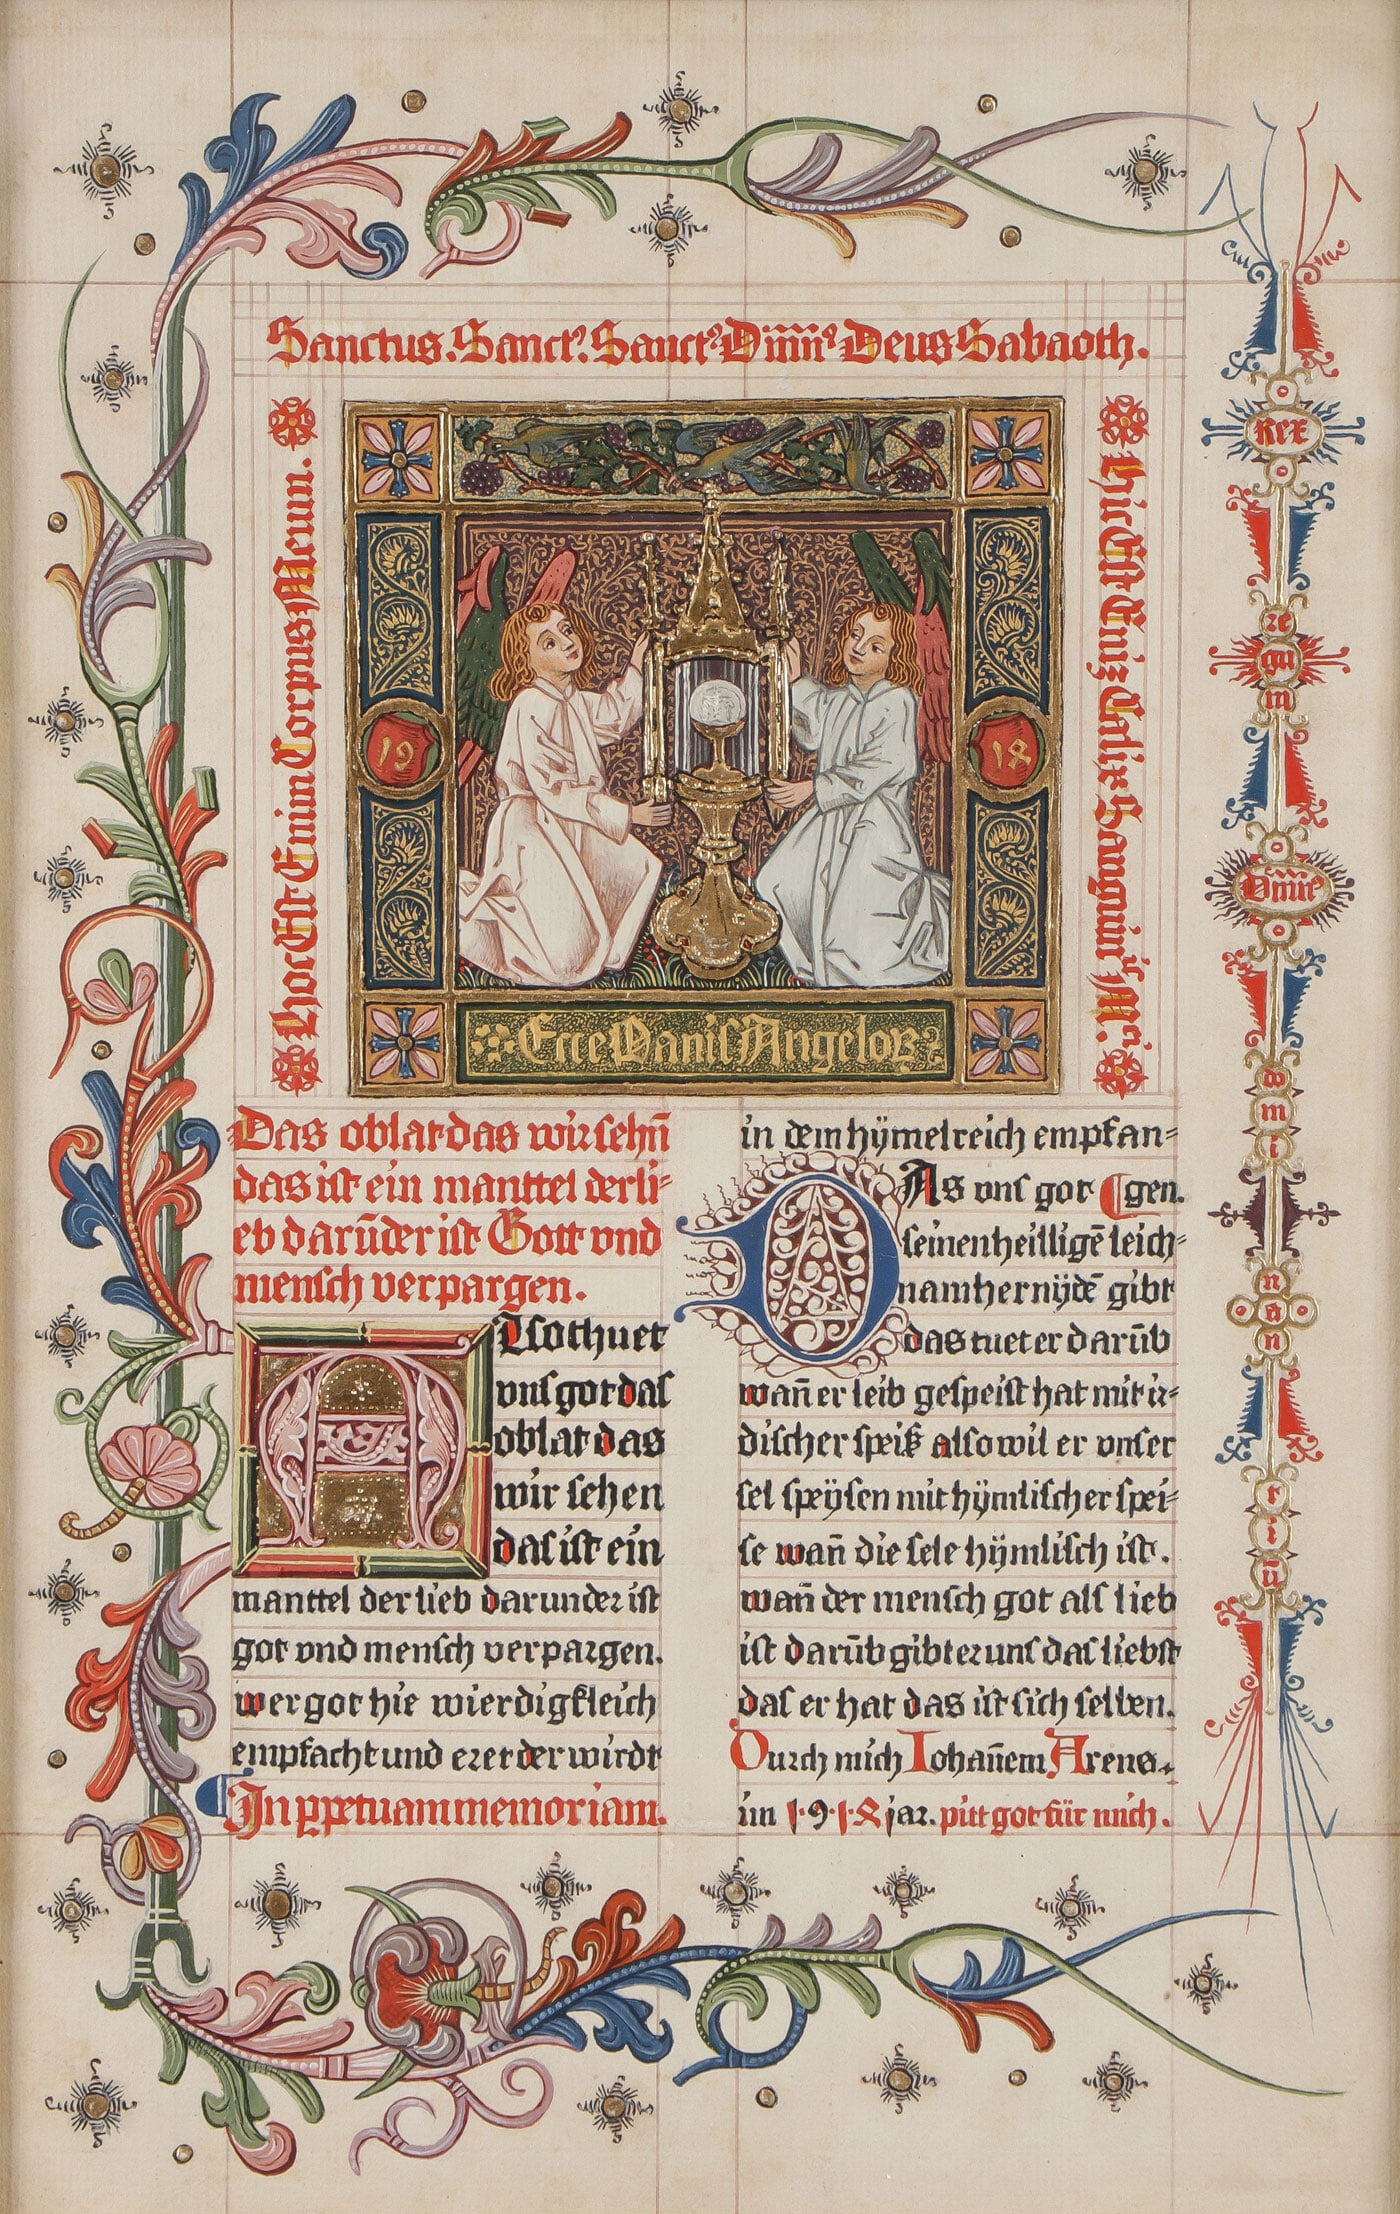 Sanctus. Sanctꝰ. Sanctꝰ Dm̄nꝰ Deus Sabaoth.
Hoc Est Enim Corpus Meum.
Hic Est Eniz Calix Sanguinis Mei.
19 18
Ecce Panis Angeloꝝ
Rex
re
gu
m
Dn̄e
do
m
i
n
a
n
t
i
ū
Das oblat das wir sehn̄
das ist ein manttel der li-
eb darūder ist Gott vnd
mensch verpargen.
Also thuet
vns got das
oblat das
wir sehen
das ist ein
manttel der lieb darunder ist
got vnd mensch verpargen.
wer got hie wierdigkleich
empfacht und eret der wirdt
In ꝑpetuam memoriam.
in dem hÿmelreich empfan-
gen.
Das vns got
seinen heilligē leich-
nam her nÿdē gibt
das tuet er darūb
wan̄ er leib gespeist hat mit ir-
discher speiß also wil er vnser
sel speÿsen mit hÿmlischer spei-
se wan̄ die sele hÿmlisch ist.
wan̄ der mensch got als lieb
ist darūb gibt er uns das liebst
das er hat das ist sich selben.
Durch mich Iohan̄em Arens.
im 1·9·1·8 jar. pitt got für mich.